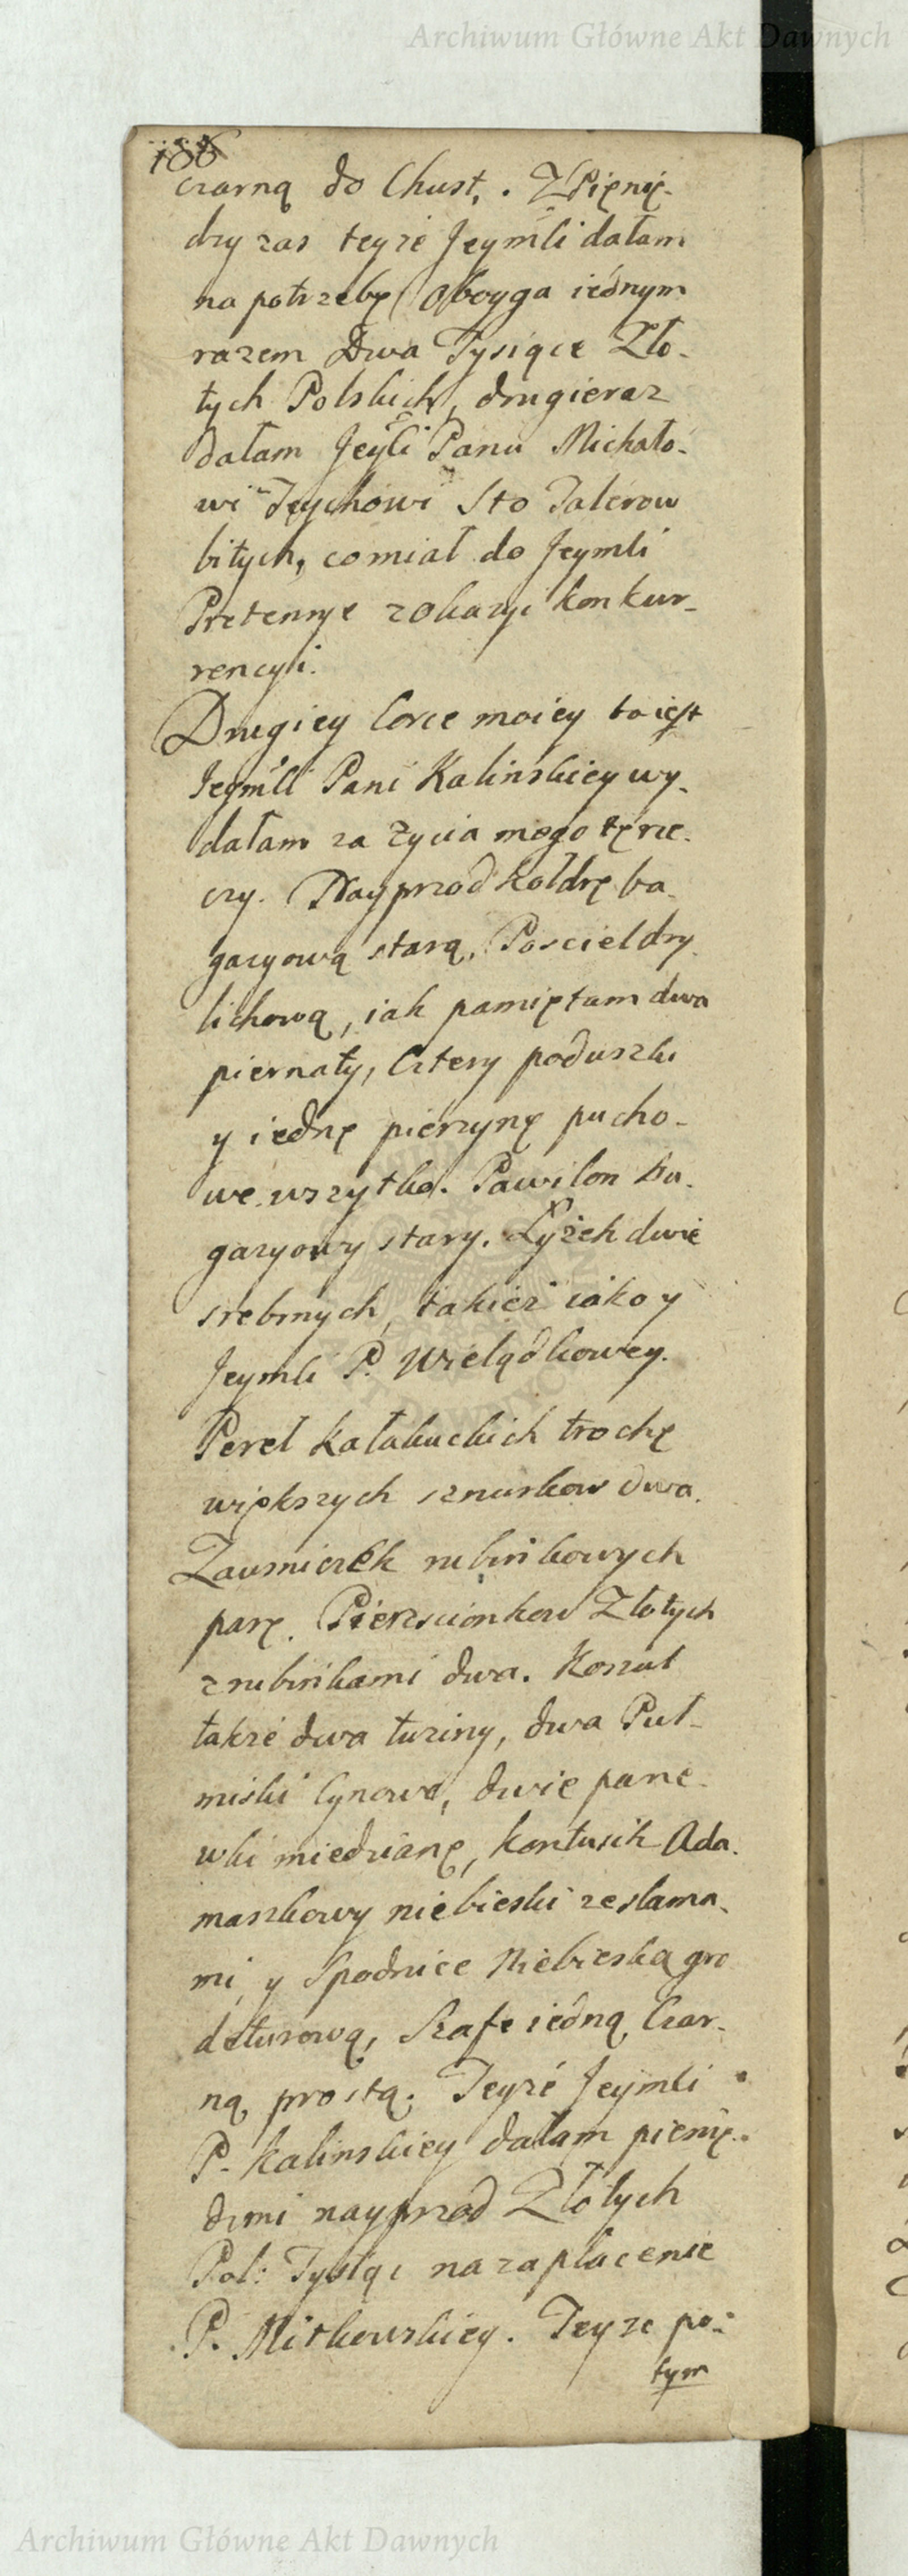 Archiwum Główne Akt Dawnych
186
czarną do Chust, . Z Pienię-
dzy zas teyże Jeymći dałam
na potrzebę Oboyga iednym
razem Dwa Tysiące Zło-
tych Polskich, drugieraz
dałam Jey Panu Michało-
wi Tychowi Sto Talerow
bitych, co miał do Jeymći
Pretensye z okazyi konkur-
rencyi.
Drugiey Corce moiey to iest
Jeymći Pani Kalinskiey wy-
dałam za życia mego tę rze-
czy. Nayprzod Kołdrę ba-
gazyową starą, Posciel dry-
lichową, iak pamiętam dwa
piernaty, Cztery poduszki
y iednę pierzynę pucho-
we wszytko. Pawilon Ba-
gazyowy stary. Łyżek dwie
srebrnych, takież iako y
Jeymći P. Wielądkowey.
Pereł kałakuckich trochę
większych sznurkow dwa.
Zausniczek rubinkowych
parę. Pierscionkow Złotych
z rubinkami dwa. Koszul
także dwa tuziny, dwa Puł-
miski Cynowe, dwie pane-
wki miedzianę, kontusik Ada-
maszkowy niebieski ze slama-
mi, y Spodnice Niebieską gro
deturową, Szafę iedną Czar-
ną, prostą. Teyże Jeymći
P. Kalinskiey dałam pienię-
dzmi nayprzod Złotych
Pol: Tysiąc na zapłacenie
P. Mitkowskiey. Teyże po-
tym
Archiwum Główne Akt Dawnych